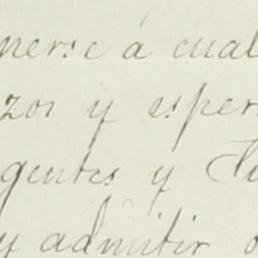 nerse á cual
zos y esper
gentes y
y admitir